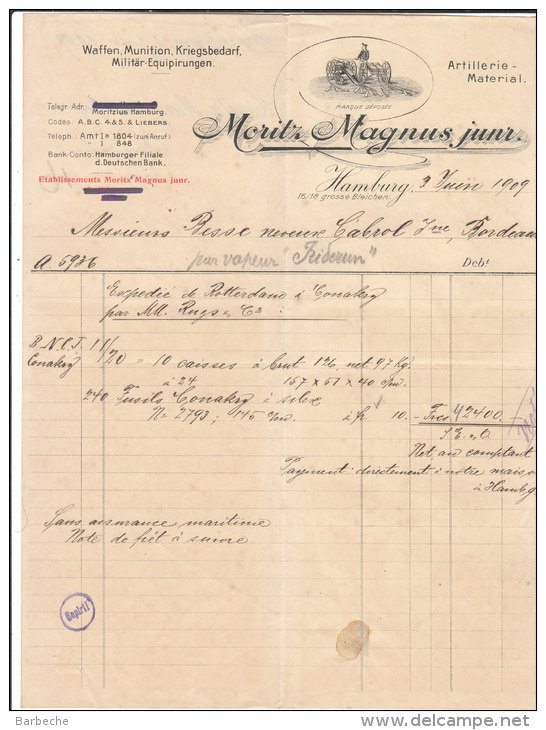 Waffen, Munition, Kriegsbedarf,
Militär-Equipirungen.
Artillerie-
Material.
MARQUE DÉPOSÉE
Telegr. Adr.:
Moritzius Hamburg.
Codes: A.B.C. 4.&5. & LIEBERS.
Teleph. Amt Ia 1804 (zum Anruf)
" 1 848
Bank-Conto: Hamburger Filiale
d. Deutschen Bank.
Etablissements Moritz Magnus junr.
Moritz Magnus junr.
Hamburg, 3 Juin 1909
16/18 grosse Bleichen.
Messieurs Besse neveux Cabrol Jne, Bordeaux
A 5986
par vapeur "Friderun"
Debt
Expedié de Rotterdam à Conakry
par MM. Ruys & Co
B.N.C.T. 11/20 = 10 caisses à brut 126, net 97 kg.
Conakry
à 24 157 x 51 x 40 c/m
240 Fusils Conakry à silex
No 2793; 145 c/m à fr 10.- Frcs 2400.
S.E. & O.
Net au comptant
Payement: directement à notre maison
à Hambg
Sans assurance maritime
Note de frêt à suivre
Copirt!
Barbeche
www.delcampe.net